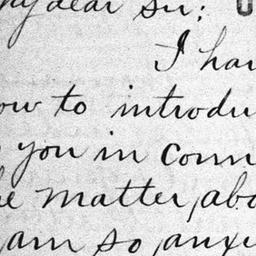 my dear Sir:
I hav
ow to introdu
you in conn
he matter, abo
am so anxi